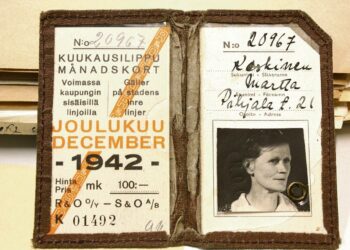 N:o 20967
KUUKAUSILIPPU
MÅNADSKORT
Voimassa Gäller
kaupungin på stadens
sisäisillä inre
linjoilla linjer
JOULUKUU
DECEMBER
- 1942 -
Hinta
Pris mk 100:—
R&O O/Y - S&O A/B
K 01492
N:o 20967
Keskinen
Sukunimi - Släktnamn
Martta
Pohjola t. 21
Osoite - Adress